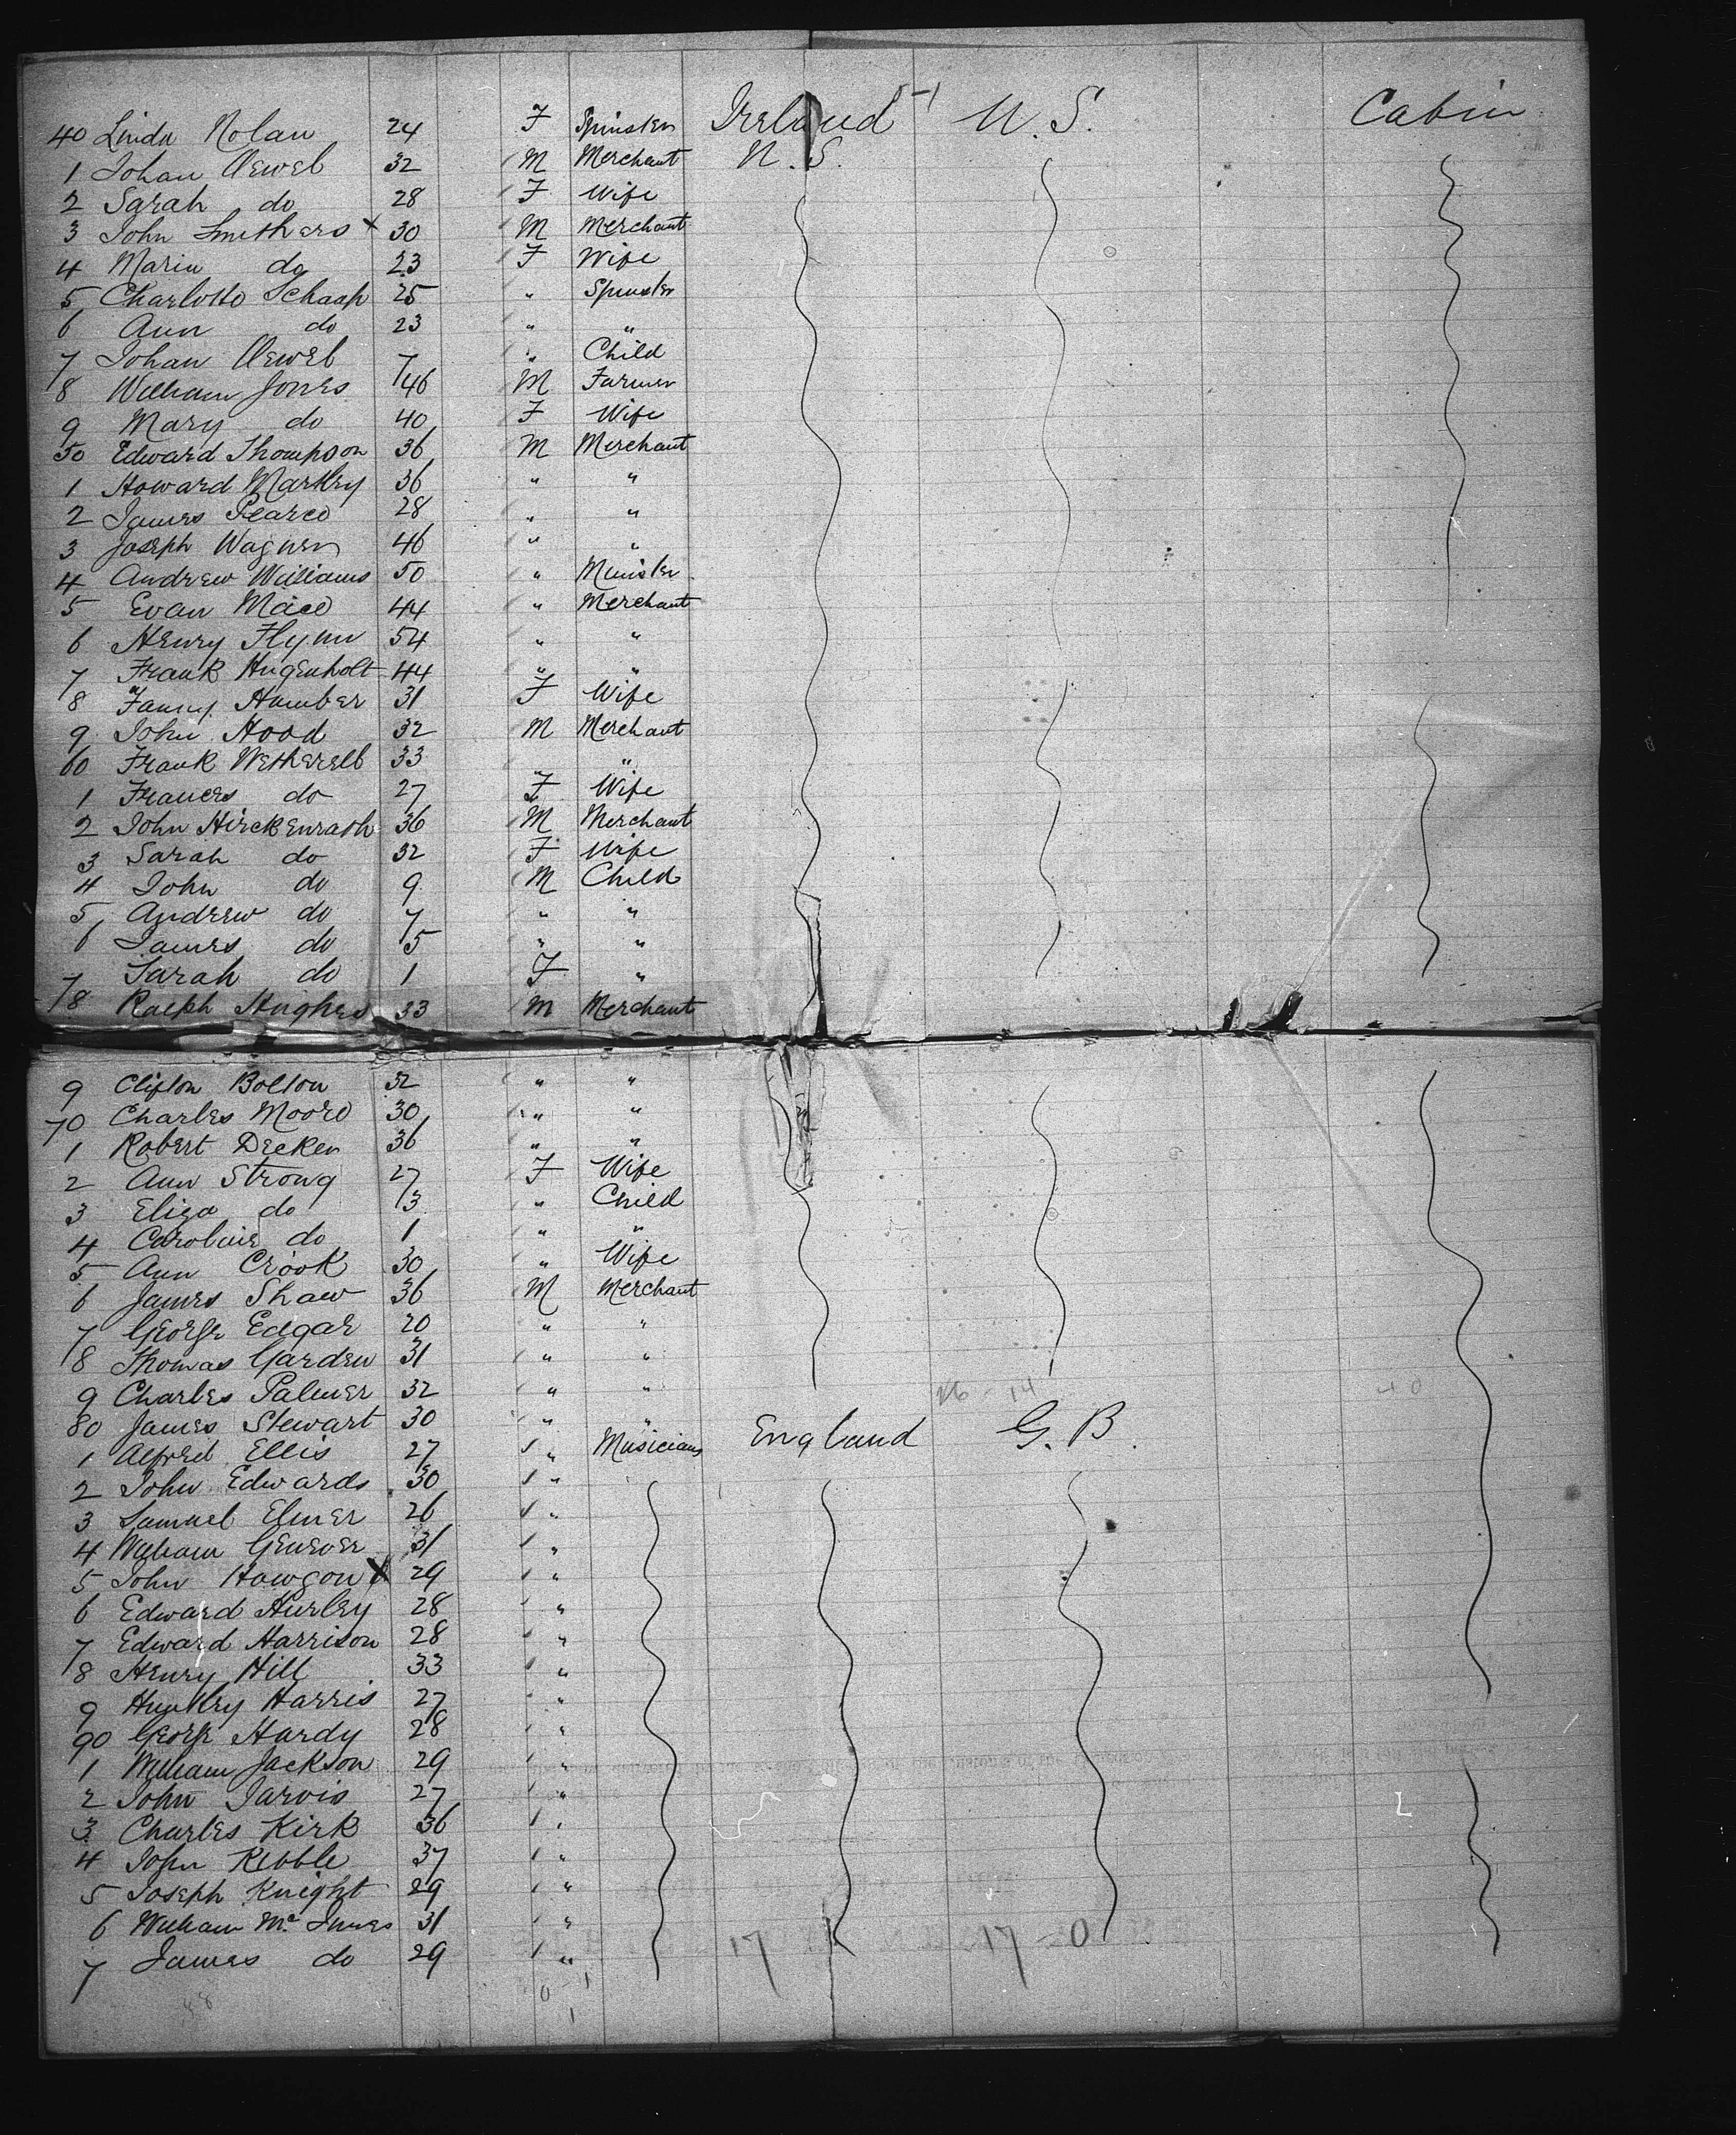 40 Linda Nolan 24 F Spinster Ireland U.S. Cabin
1 Johan 32 M Merchant U.S.
2 Sarah do 28 F Wife
3 John Smithers x 30 M Merchant
4 Maria do 23 F Wife
5 Charlotte Schaap 25 " Spinster
6 Ann do 23 " "
7 Johan 7 " Child
8 William Jones 46 M Farmer
9 Mary do 40 F Wife
50 Edward Thompson 36 M Merchant
1 Howard Markley 36 " "
2 James Pearce 28 " "
3 Joseph Wagner 46 " "
4 Andrew Williams 50 " Minister
5 Evan Mace 44 " Merchant
6 Henry Flynn 54 " "
7 Frank Hugenholt 44 " "
8 Fanny Humber 31 F Wife
9 John Hood 32 M Merchant
60 Frank Wetherell 33 " "
1 Frances do 27 F Wife
2 John Hirckenrath 36 M Merchant
3 Sarah do 32 F Wife
4 John do 9 M Child
5 Andrew do 7 " "
6 James do 5 " "
7 Sarah do 1 F "
8 Ralph Hughes 33 M Merchant
9 Clifton Bolton 32 " "
70 Charles Moore 30 " "
1 Robert Decker 36 " "
2 Ann Strong 27 F Wife
3 Eliza do 3 " Child
4 Caroline do 1 " "
5 Ann Crook 30 " Wife
6 James Shaw 36 M Merchant
7 George Edgar 20 " "
8 Thomas Garden 31 " "
9 Charles Palmer 32 " "
80 James Stewart 30 " "
1 Alfred Ellis 27 " Musicians England G.B.
2 John Edwards 30 "
3 Samuel Elmer 26 "
4 William Genever 31 "
5 John Howgon x 29 "
6 Edward Hurley 28 "
7 Edward Harrison 28 "
8 Henry Hill 33 "
9 Harris 27 "
90 George Hardy 28 "
1 William Jackson 29 "
2 John Jarvis 27 "
3 Charles Kirk 36 "
4 John Kebble 37 "
5 Joseph Knight 29 "
6 William McInnes 31 "
7 James do 29 " 17 17-0